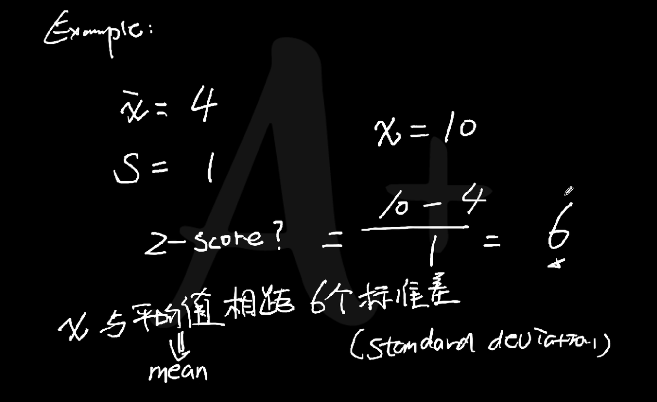 Example:
x̄ = 4
x = 10
S = 1
z-score? = (10 - 4) / 1 = 6
x 与平均值相距 6个标准差
⇓
mean
(standard deviation)
A+